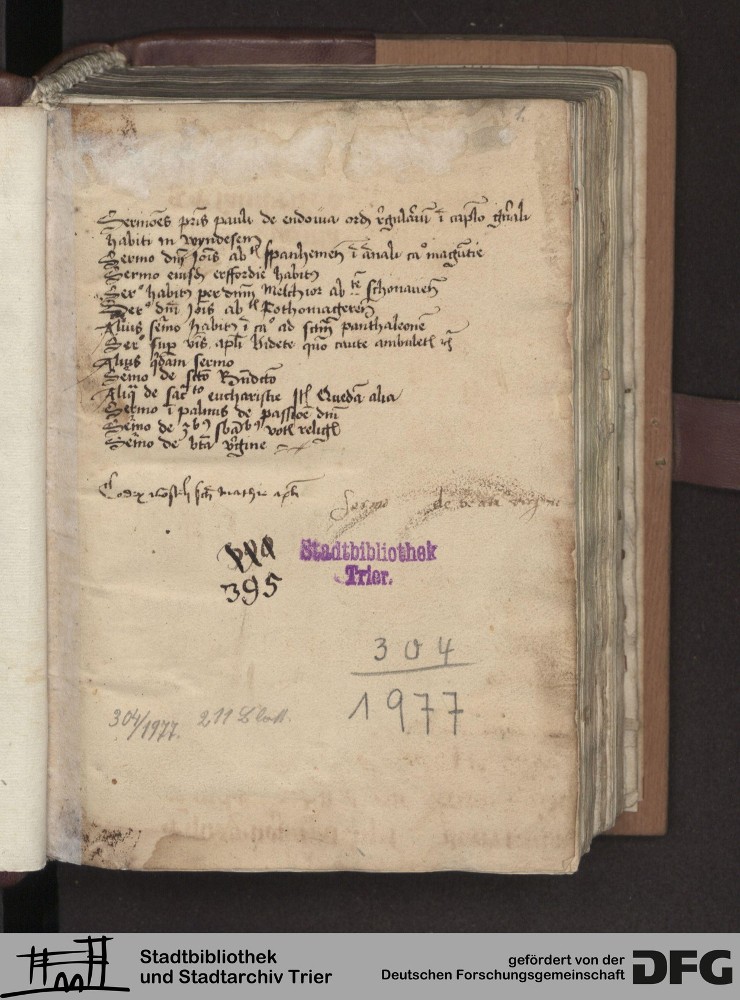 1.
Sermões pris pauli de endouia ordis rgulariū ī caplo gnali
habiti in wyndesem
Sermo dni Jois abtis spanhemen ī ānali ca° magūtie
Sermo eiusdē erffordie habitus
Ser° habitus per dnm Melchior abtē schonauen
Ser° dni Jois abtis Rothomageren
Alius sermo habitus ī ca° ad sctm panthaleonē
Ser° sup vbis apli Videte quo caute ambuletis
Alius qdam sermo
Sermo de scto Bndcto
Aliq de sacto eucharistie Itē Quedā alia
Sermo ī palmis de passioē dni
Sermo de 3bus sbāibus votis religiois
Sermo de bta vgine
Codex mostii scti Mathie apli
Sermo de beata virgine
395
Stadtbibliothek
Trier.
304
1977
304/1977. 211 Blatt.
Stadtbibliothek
und Stadtarchiv Trier
gefördert von der
Deutschen Forschungsgemeinschaft
DFG